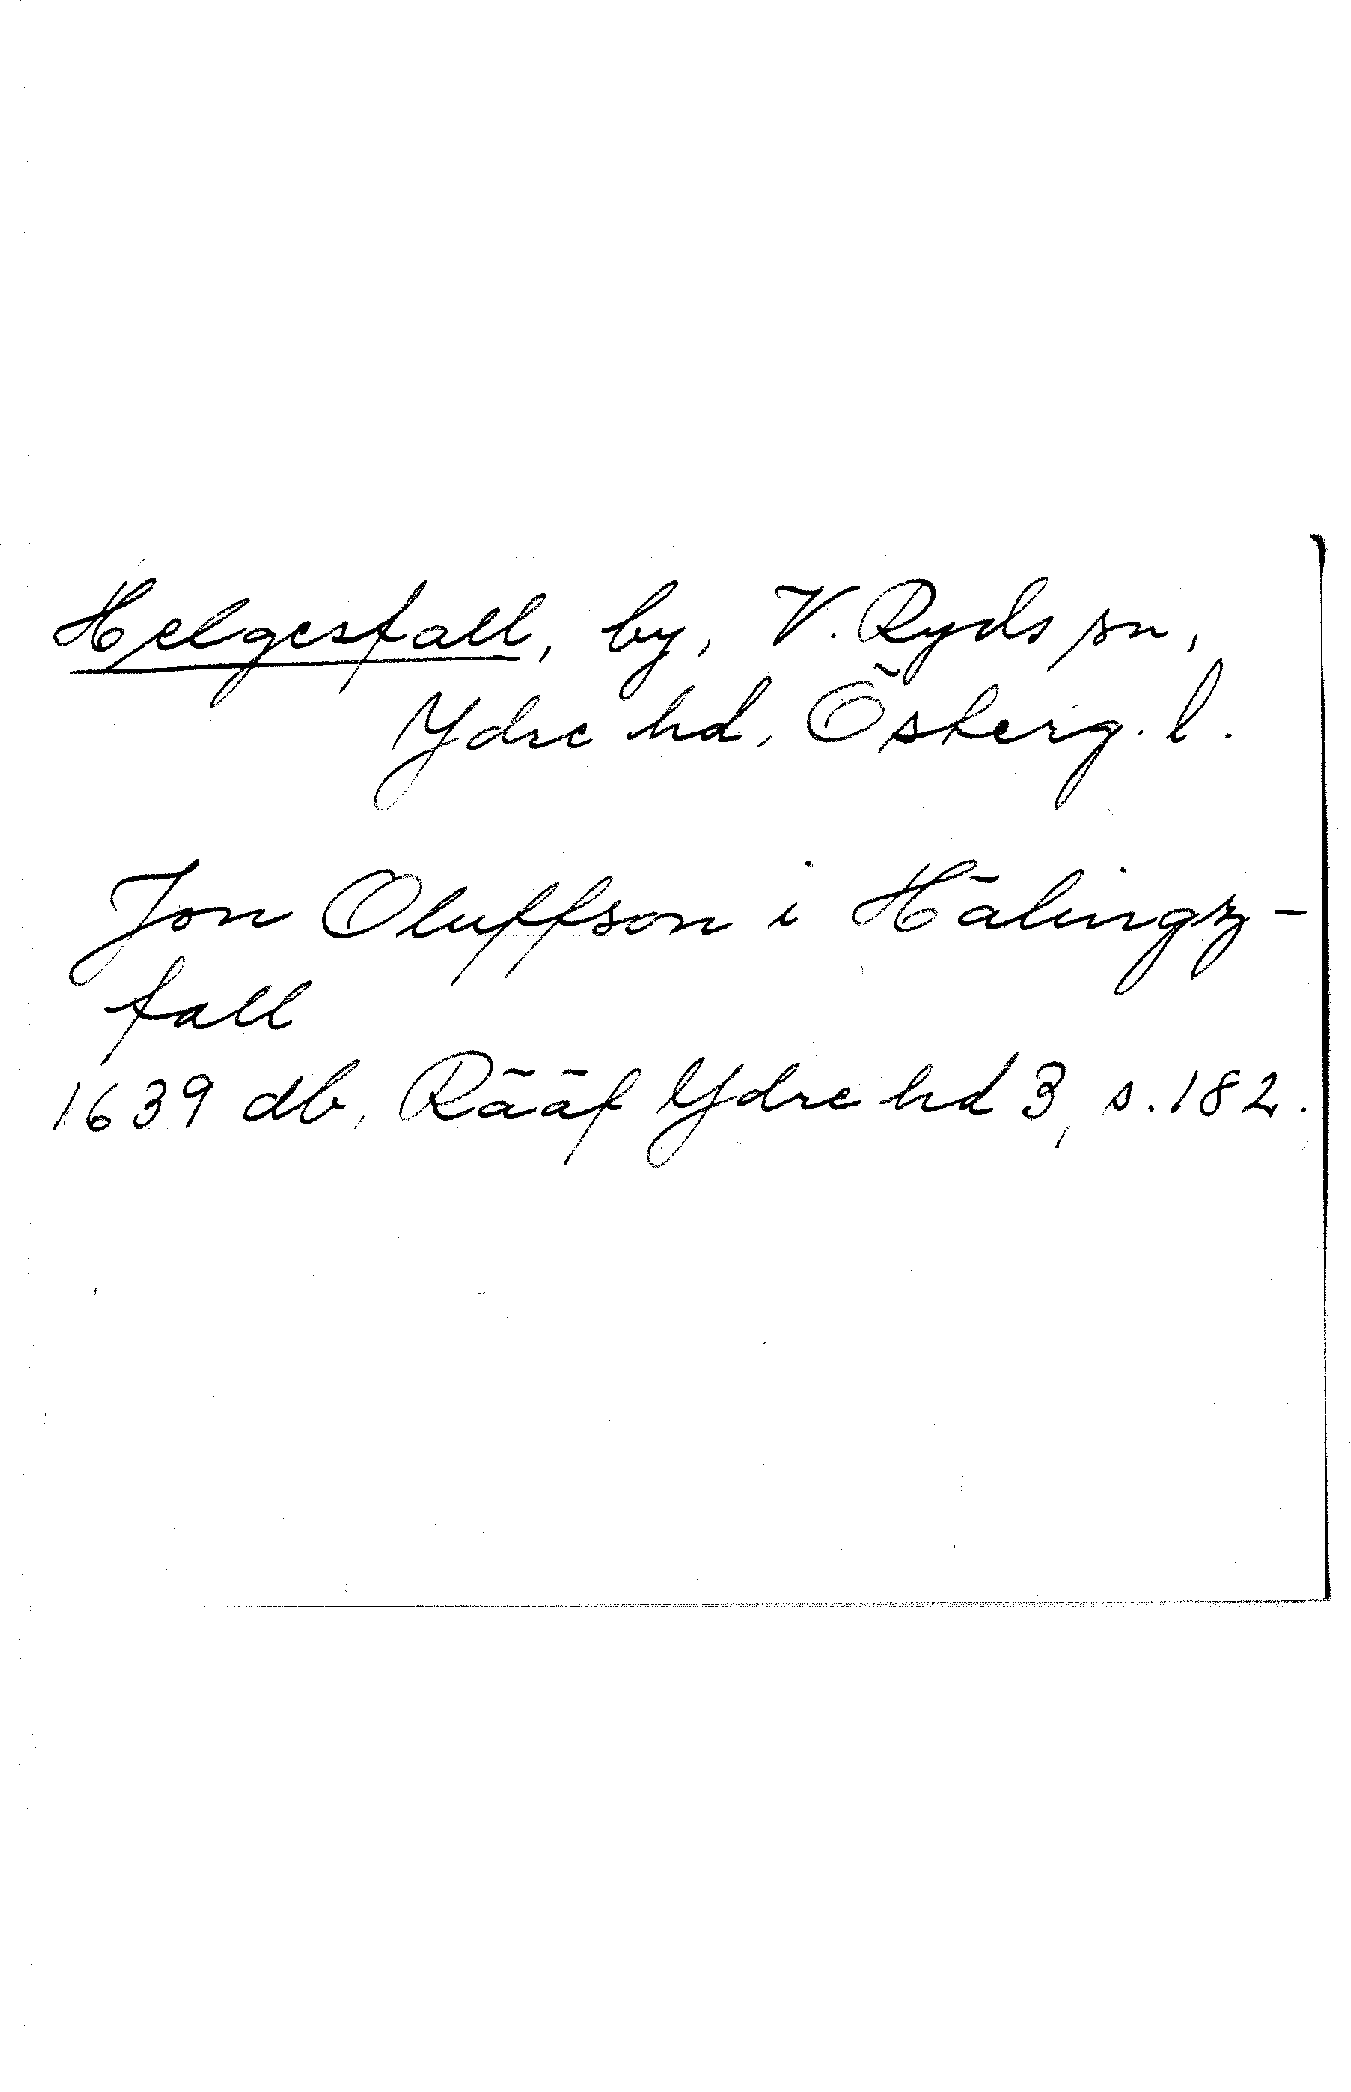 Helgesfall, by, V. Ryds sn,
Ydre hd, Österg. l.
Jon Oluffson i Hälingz-
fall
1639 db, Rääf Ydre hd 3, s. 182.